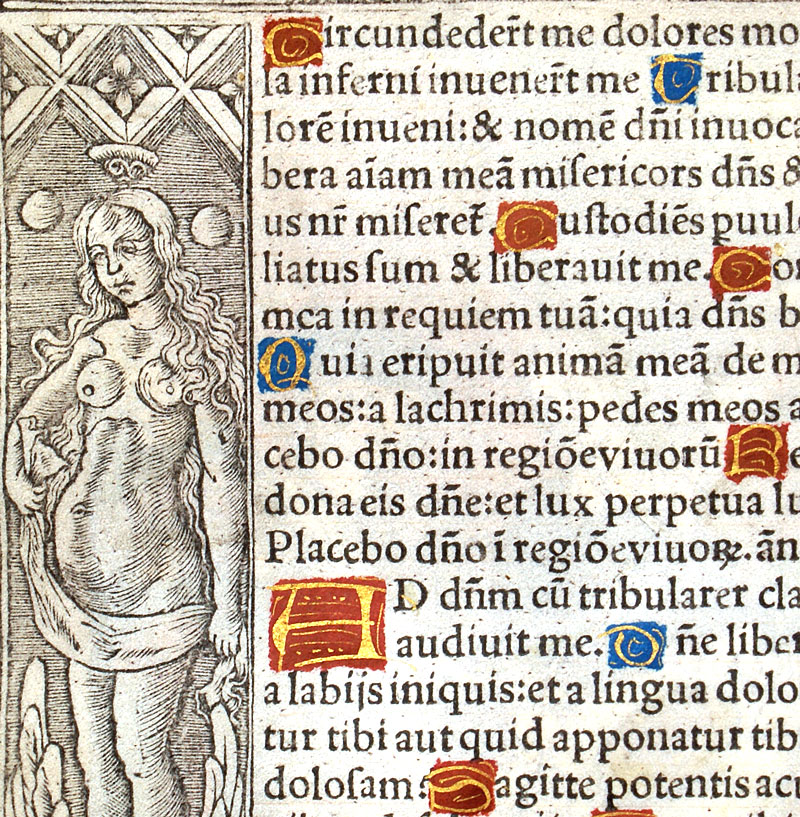 Circundeder̃t me dolores mo
la inferni inuener̃t me Tribul
lorē inueni:& nomē dn̄i inuoca
bera aīam meā miſericors dn̄s &
us nr̄ miſeret̄. Cuſtodiēs puul
liatus ſum & liberauit me. Con
mea in requiem tuā:quia dn̄s b
Quia eripuit animā meā de m
meos:a lachrimis:pedes meos a
cebo dn̄o:in regiōe viuorū Re
dona eis dn̄e:et lux perpetua lu
Placebo dn̄o ī regiōe viuoꝝ. ān
AD dn̄m cū tribularer cla
audiuit me. Dn̄e liber
a labijs iniquis:et a lingua dolo
tur tibi aut quid apponatur tib
doloſam: Sagitte potentis acu